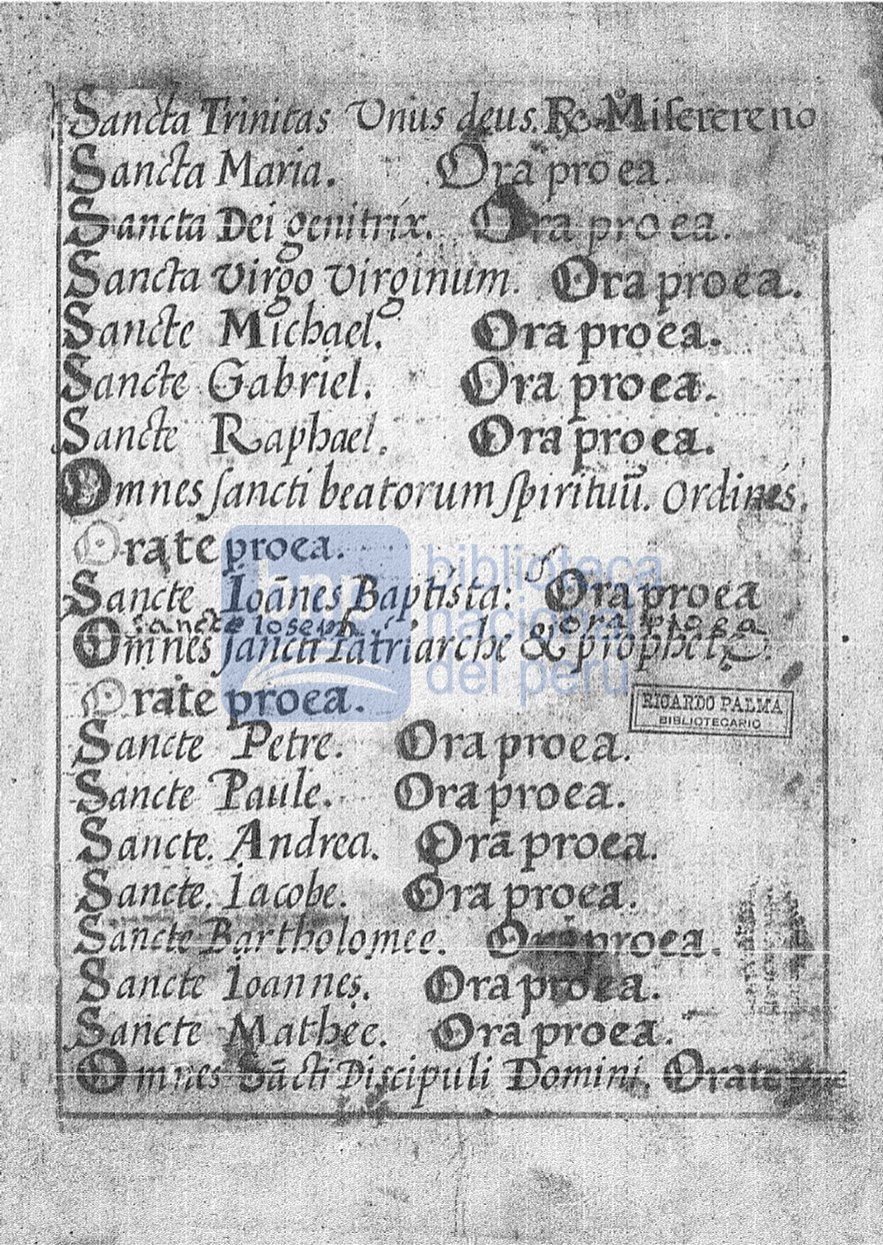 Sancta Trinitas Unius deus. R. Miserere no
Sancta Maria. Ora pro ea.
Sancta Dei genitrix. Ora pro ea.
Sancta Virgo Virginum. Ora pro ea.
Sancte Michael. Ora pro ea.
Sancte Gabriel. Ora pro ea.
Sancte Raphael. Ora pro ea.
Omnes sancti beatorum spirituū. Ordines.
Orate pro ea.
Sancte Ioānes Baptista: Ora pro ea
sancte ioseph. ora pro ea
Omnes sancti Patriarche & prophetę.
Orate pro ea.
RICARDO PALMA
BIBLIOTECARIO
Sancte Petre. Ora pro ea.
Sancte Paule. Ora pro ea.
Sancte. Andrea. Ora pro ea.
Sancte. Iacobe. Ora pro ea.
Sancte Bartholomee. Ora pro ea.
Sancte Ioannes. Ora pro ea.
Sancte Mathee. Ora pro ea.
Omnes Sācti Discipuli Domini. Orate pro
biblioteca
nacional
del perú
bnp